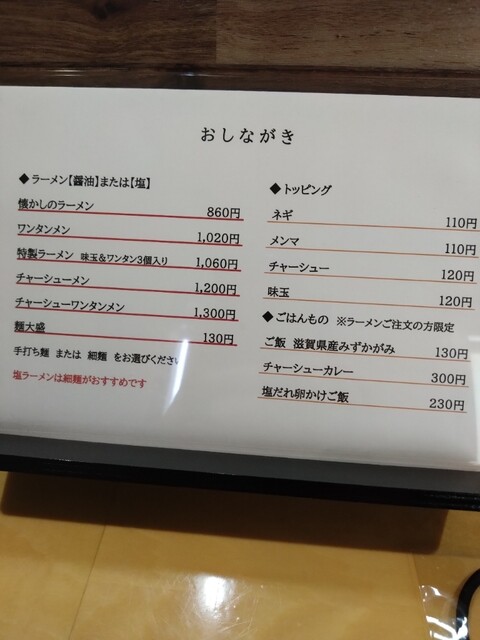 おしながき
◆ラーメン【醤油】または【塩】
懐かしのラーメン 860円
ワンタンメン 1,020円
特製ラーメン 味玉&ワンタン3個入り 1,060円
チャーシューメン 1,200円
チャーシューワンタンメン 1,300円
麺大盛 130円
手打ち麺 または 細麺 をお選びください
塩ラーメンは細麺がおすすめです
◆トッピング
ネギ 110円
メンマ 110円
チャーシュー 120円
味玉 120円
◆ごはんもの ※ラーメンご注文の方限定
ご飯 滋賀県産みずかがみ 130円
チャーシューカレー 300円
塩だれ卵かけご飯 230円